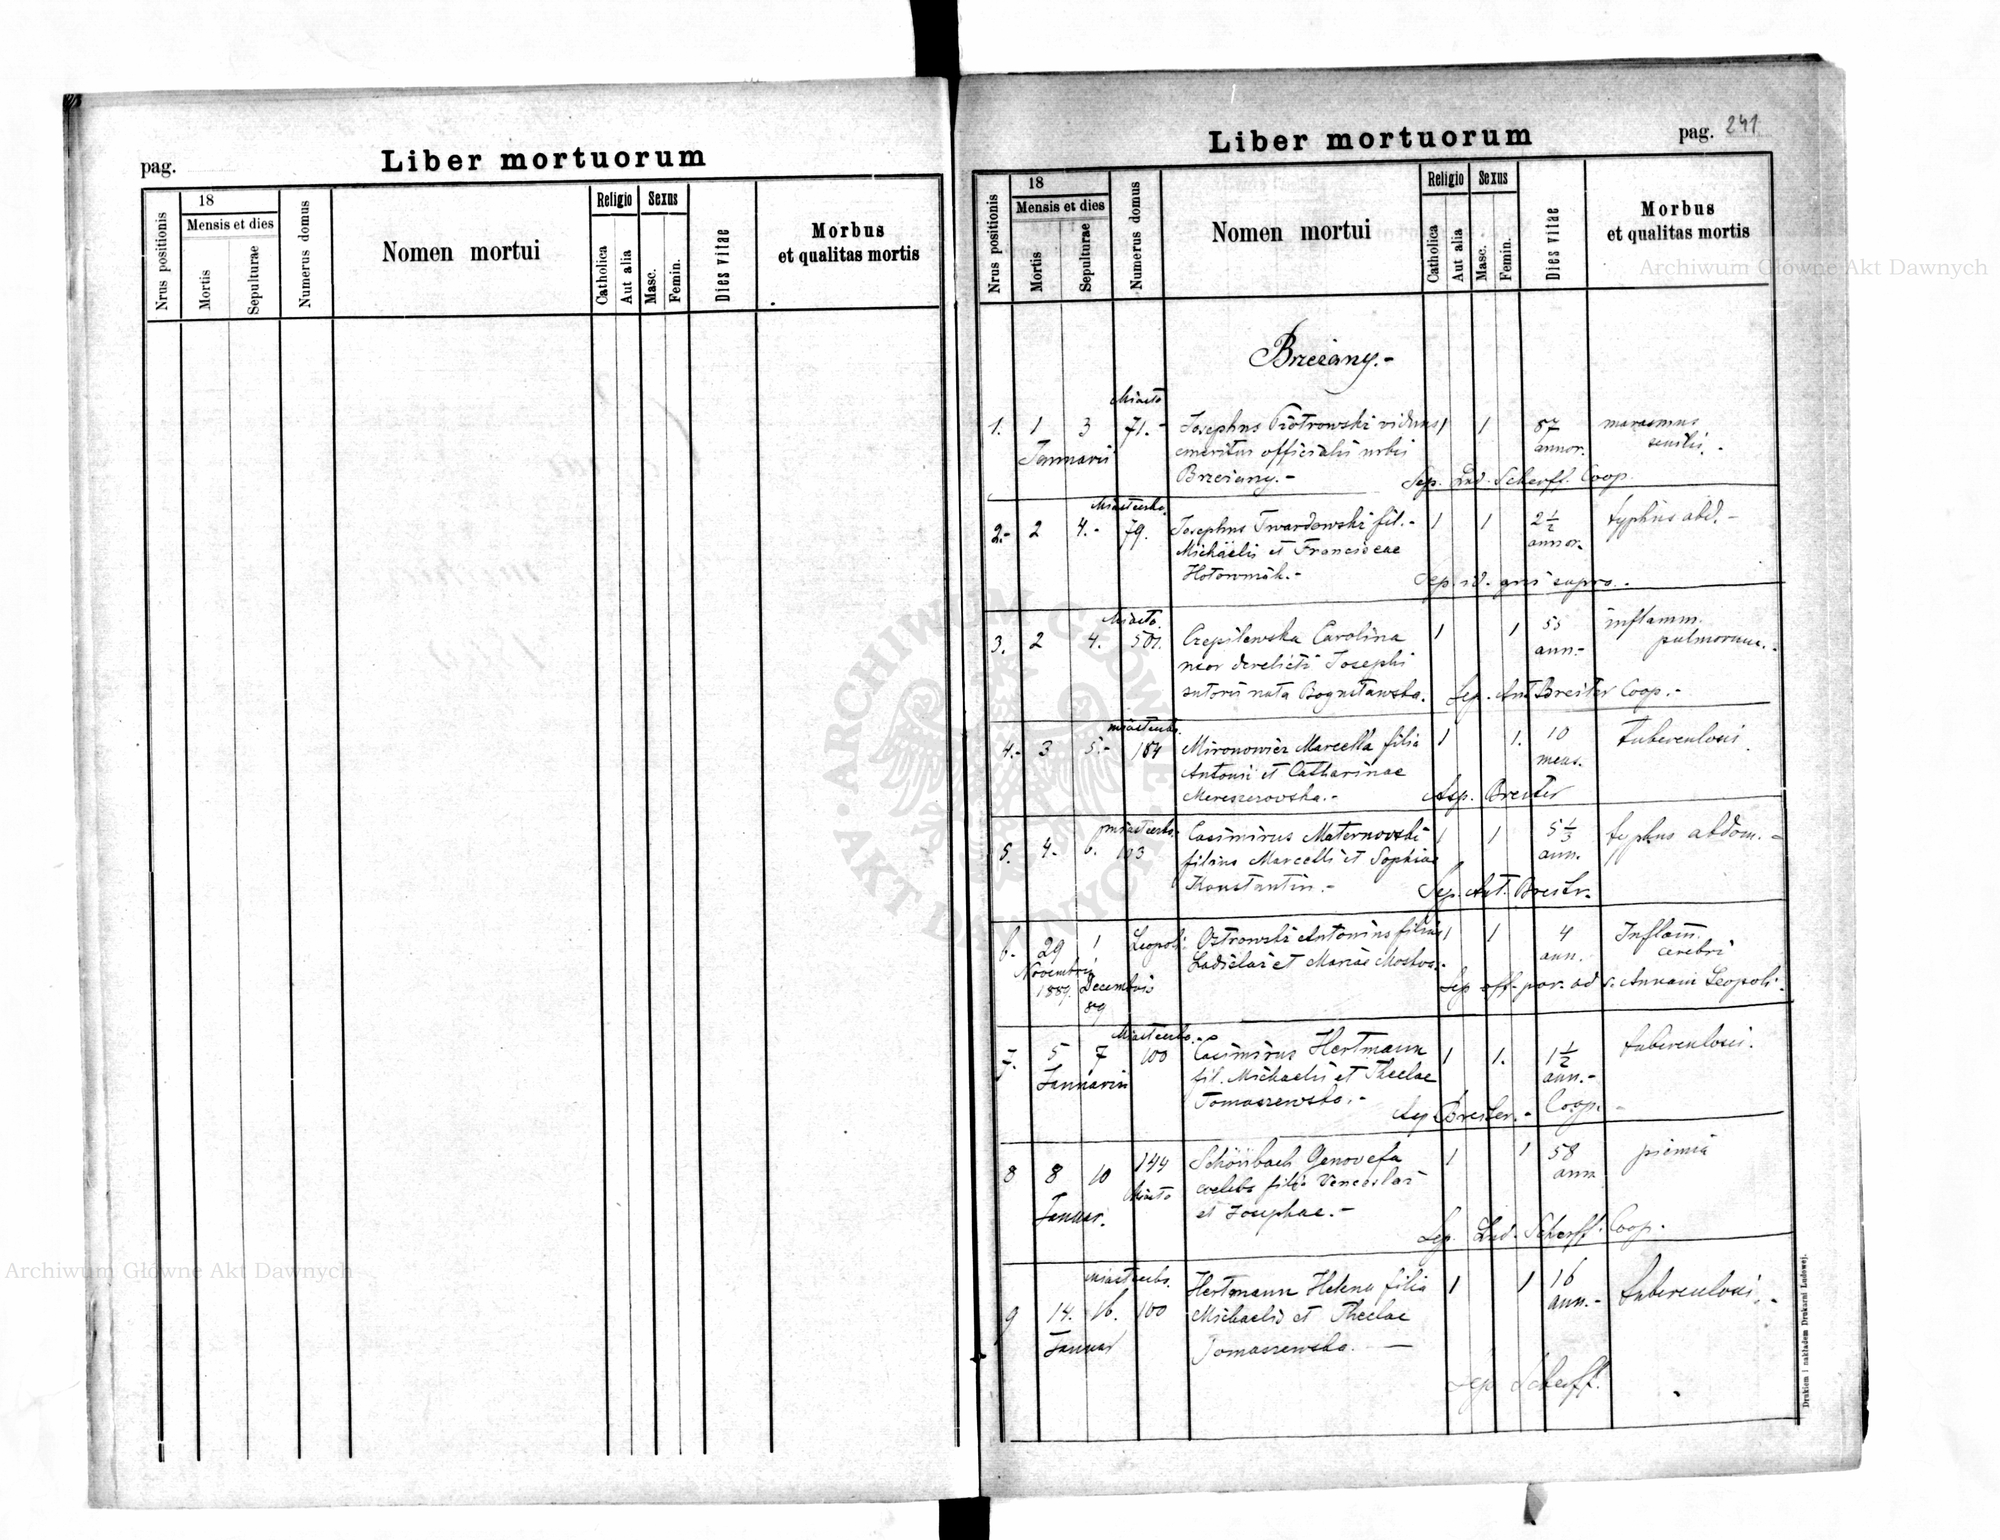 pag.
Liber mortuorum
Nrus positionis
18
Mensis et dies
Mortis
Sepulturae
Numerus domus
Nomen mortui
Religio
Catholica
Aut alia
Sexus
Masc.
Femin.
Dies vitae
Morbus
et qualitas mortis
Liber mortuorum
pag. 241
Nrus positionis
18
Mensis et dies
Mortis
Sepulturae
Numerus domus
Nomen mortui
Religio
Catholica
Aut alia
Sexus
Masc.
Femin.
Dies vitae
Morbus
et qualitas mortis
Archiwum Główne Akt Dawnych
Brzeżany.-
Miasto
1. 1 3 71.- Josephus Piotrowski viduus 1 1 87 marasmus
Januarii emeritus officialis urbis annor. senilis.-
Brzeżany.- Sep. Lud. Scherff. Coop.
Miasteczko.
2.- 2 4.- 79. Josephus Twardowski fil.- 1 1 2 1/2 typhus abd.-
Michaelis et Franciscae annor.
Sep. id. qui supra.-
Miasto.
3. 2 4. 501. Czepilewska Carolina 1 1 55 inflamm.
uxor derelicti Josephi ann.- pulmonum.-
sutoris nata Sep. Ant Breiter Coop.-
miasteczko.
4.- 3 5.- 184 Mironowicz Marcella filia 1 1. 10 tuberculosis
Antonii et Catharinae mens.
Breiter
miasteczko.
5. 4. 6. 103 Casimirus Maternowski 1 1 5 1/3 typhus abdom.-
filius Marcelli et Sophiae ann.
Konstantin.- Sep. Ant. Breiter.
6. 29 1 Leopoli Ostrowski Antonius filius 1 1 4 Inflam.
Novembris Ladislai et Mariae Moskwa.- ann. cerebri
1889. Decembris Sep off. par. ad s. Annam Leopoli.
89
Miasteczko.
7. 5 7 100 Casimirus Hertmann 1 1. 1 1/2 tuberculosis.
Januarii fil. Michaelis et Theclae ann.-
Tomaszewska.- Breiter.- Coop.-
8 8 10 144 Schönbach Genovefa 1 1 58 piemia
Januar. Miasto coelebs filia Venceslai ann
et Josephae.-
Sep. Lud. Scherff. Coop.
miasteczko.
9 14. 16. 100 Hertmann Helena filia 1 1 16 tuberculosis.-
Januar Michaelis et Theclae ann.-
Tomaszewska.
Sep Scherff.
Drukiem i nakładem Drukarni Ludowej.
ARCHIWUM GŁÓWNE AKT DAWNYCH
Archiwum Główne Akt Dawnych